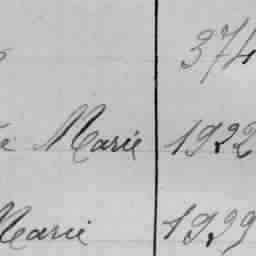 374
Marie 1922
Marie 1929